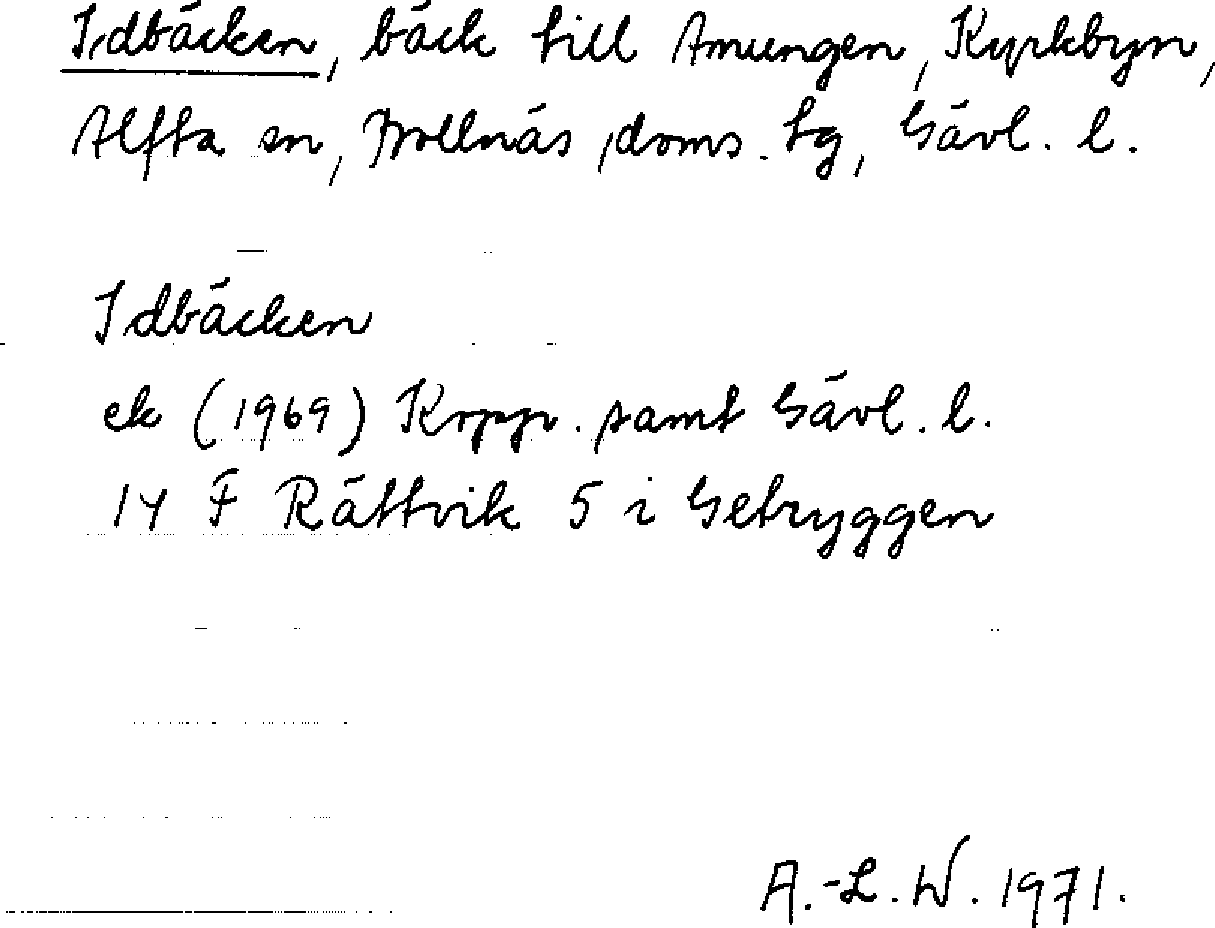 Idbäcken, bäck till Amungen, Kyrkbyn,
Alfta sn, Bollnäs doms. tg, Gävl. l.
Idbäcken
ek (1969) Kopp. samt Gävl. l.
14 F Rättvik 5 i Getryggen
A.-L. W. 1971.